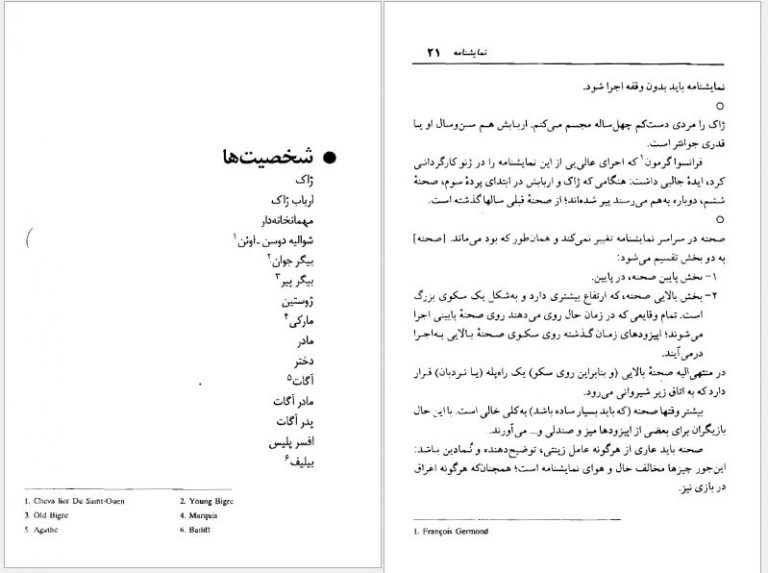 ● شخصیت‌ها
ژاک
ارباب ژاک
مهمانخانه‌دار
شوالیه دوسن ـ اوئن۱
بیگر جوان۲
بیگر پیر۳
ژوستین
مارکی۴
مادر
دختر
آگات۵
مادر آگات
پدر آگات
افسر پلیس
بیلیف۶
1. Chevalier De Saint-Ouen 2. Young Bigre
3. Old Bigre 4. Marquis
5. Agathe 6. Bailiff
نمایشنامه ۲۱
نمایشنامه باید بدون وقفه اجرا شود.
○
ژاک را مردی دست‌کم چهل‌ساله مجسم می‌کنم. اربابش هم سن‌وسال او یا
قدری جوانتر است.
فرانسوا گرمون۱ که اجرای عالی‌یی از این نمایشنامه را در ژنو کارگردانی
کرد، ایدهٔ جالبی داشت: هنگامی که ژاک و اربابش در ابتدای پردهٔ سوم، صحنهٔ
ششم، دوباره به‌هم می‌رسند پیر شده‌اند؛ از صحنهٔ قبلی سالها گذشته است.
○
صحنه در سراسر نمایشنامه تغییر نمی‌کند و همان‌طور که بود می‌ماند. [صحنه]
به دو بخش تقسیم می‌شود:
۱- بخش پایین صحنه، در پایین.
۲- بخش بالایی صحنه، که ارتفاع بیشتری دارد و به‌شکل یک سکوی بزرگ
است. تمام وقایعی که در زمان حال روی می‌دهند روی صحنهٔ پایینی اجرا
می‌شوند؛ اپیزودهای زمان گذشته روی سکوی صحنهٔ بالایی به‌اجرا
درمی‌آیند.
در منتهی‌الیه صحنهٔ بالایی (و بنابراین روی سکو) یک راه‌پله (یا نردبان) قرار
دارد که به اتاق زیر شیروانی می‌رود.
بیشتر وقتها صحنه (که باید بسیار ساده باشد) به‌کلی خالی است. با این حال
بازیگران برای بعضی از اپیزودها میز و صندلی و... می‌آورند.
صحنه باید عاری از هرگونه عامل زینتی، توضیح‌دهنده و نمادین باشد:
این‌جور چیزها مخالف حال و هوای نمایشنامه است؛ همچنان‌که هرگونه اغراق
در بازی نیز.
1. François Germond